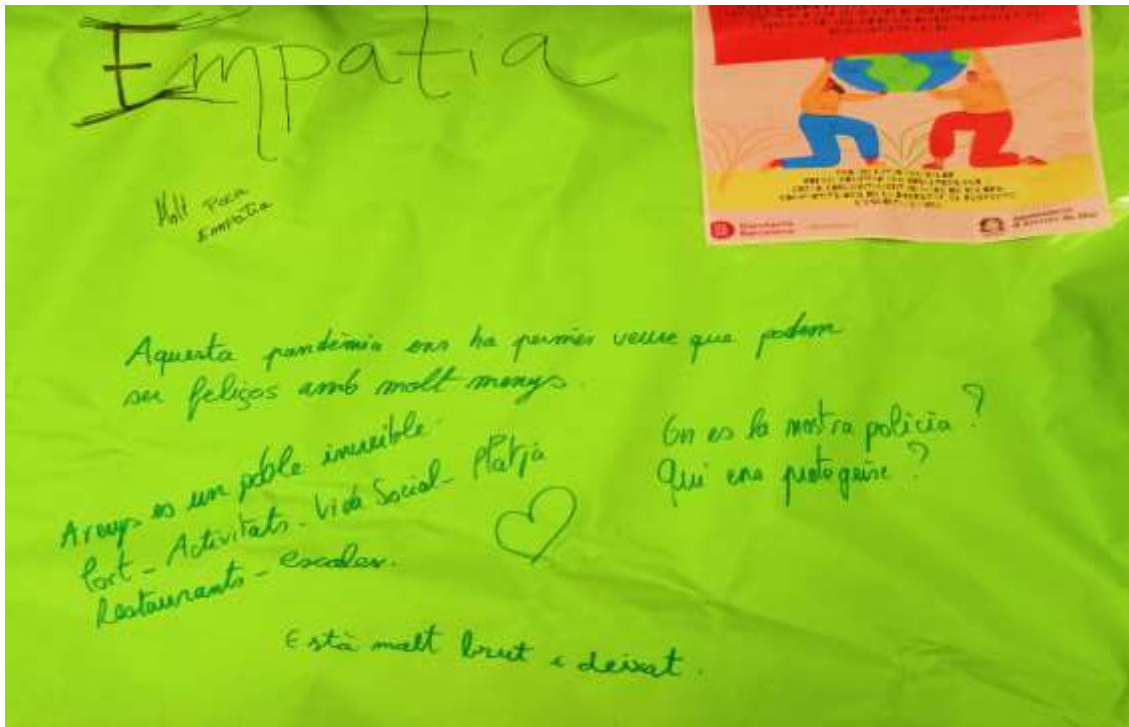 Empatia
Molt Poca
Empatia
Diputació
Barcelona
Aquesta pandèmia ens ha permès veure que podem
ser feliços amb molt menys.
Arenys es un poble increible.
Port - Activitats - Vida Social - Platja
Restaurants - escoles.
On es la nostra policia?
Qui ens protegeix?
Està molt brut i deixat.